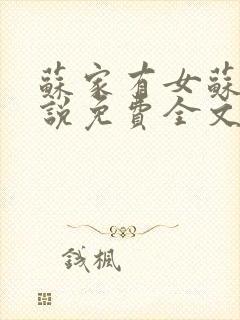 蘇家有女蘇
說免費全文
錢楓